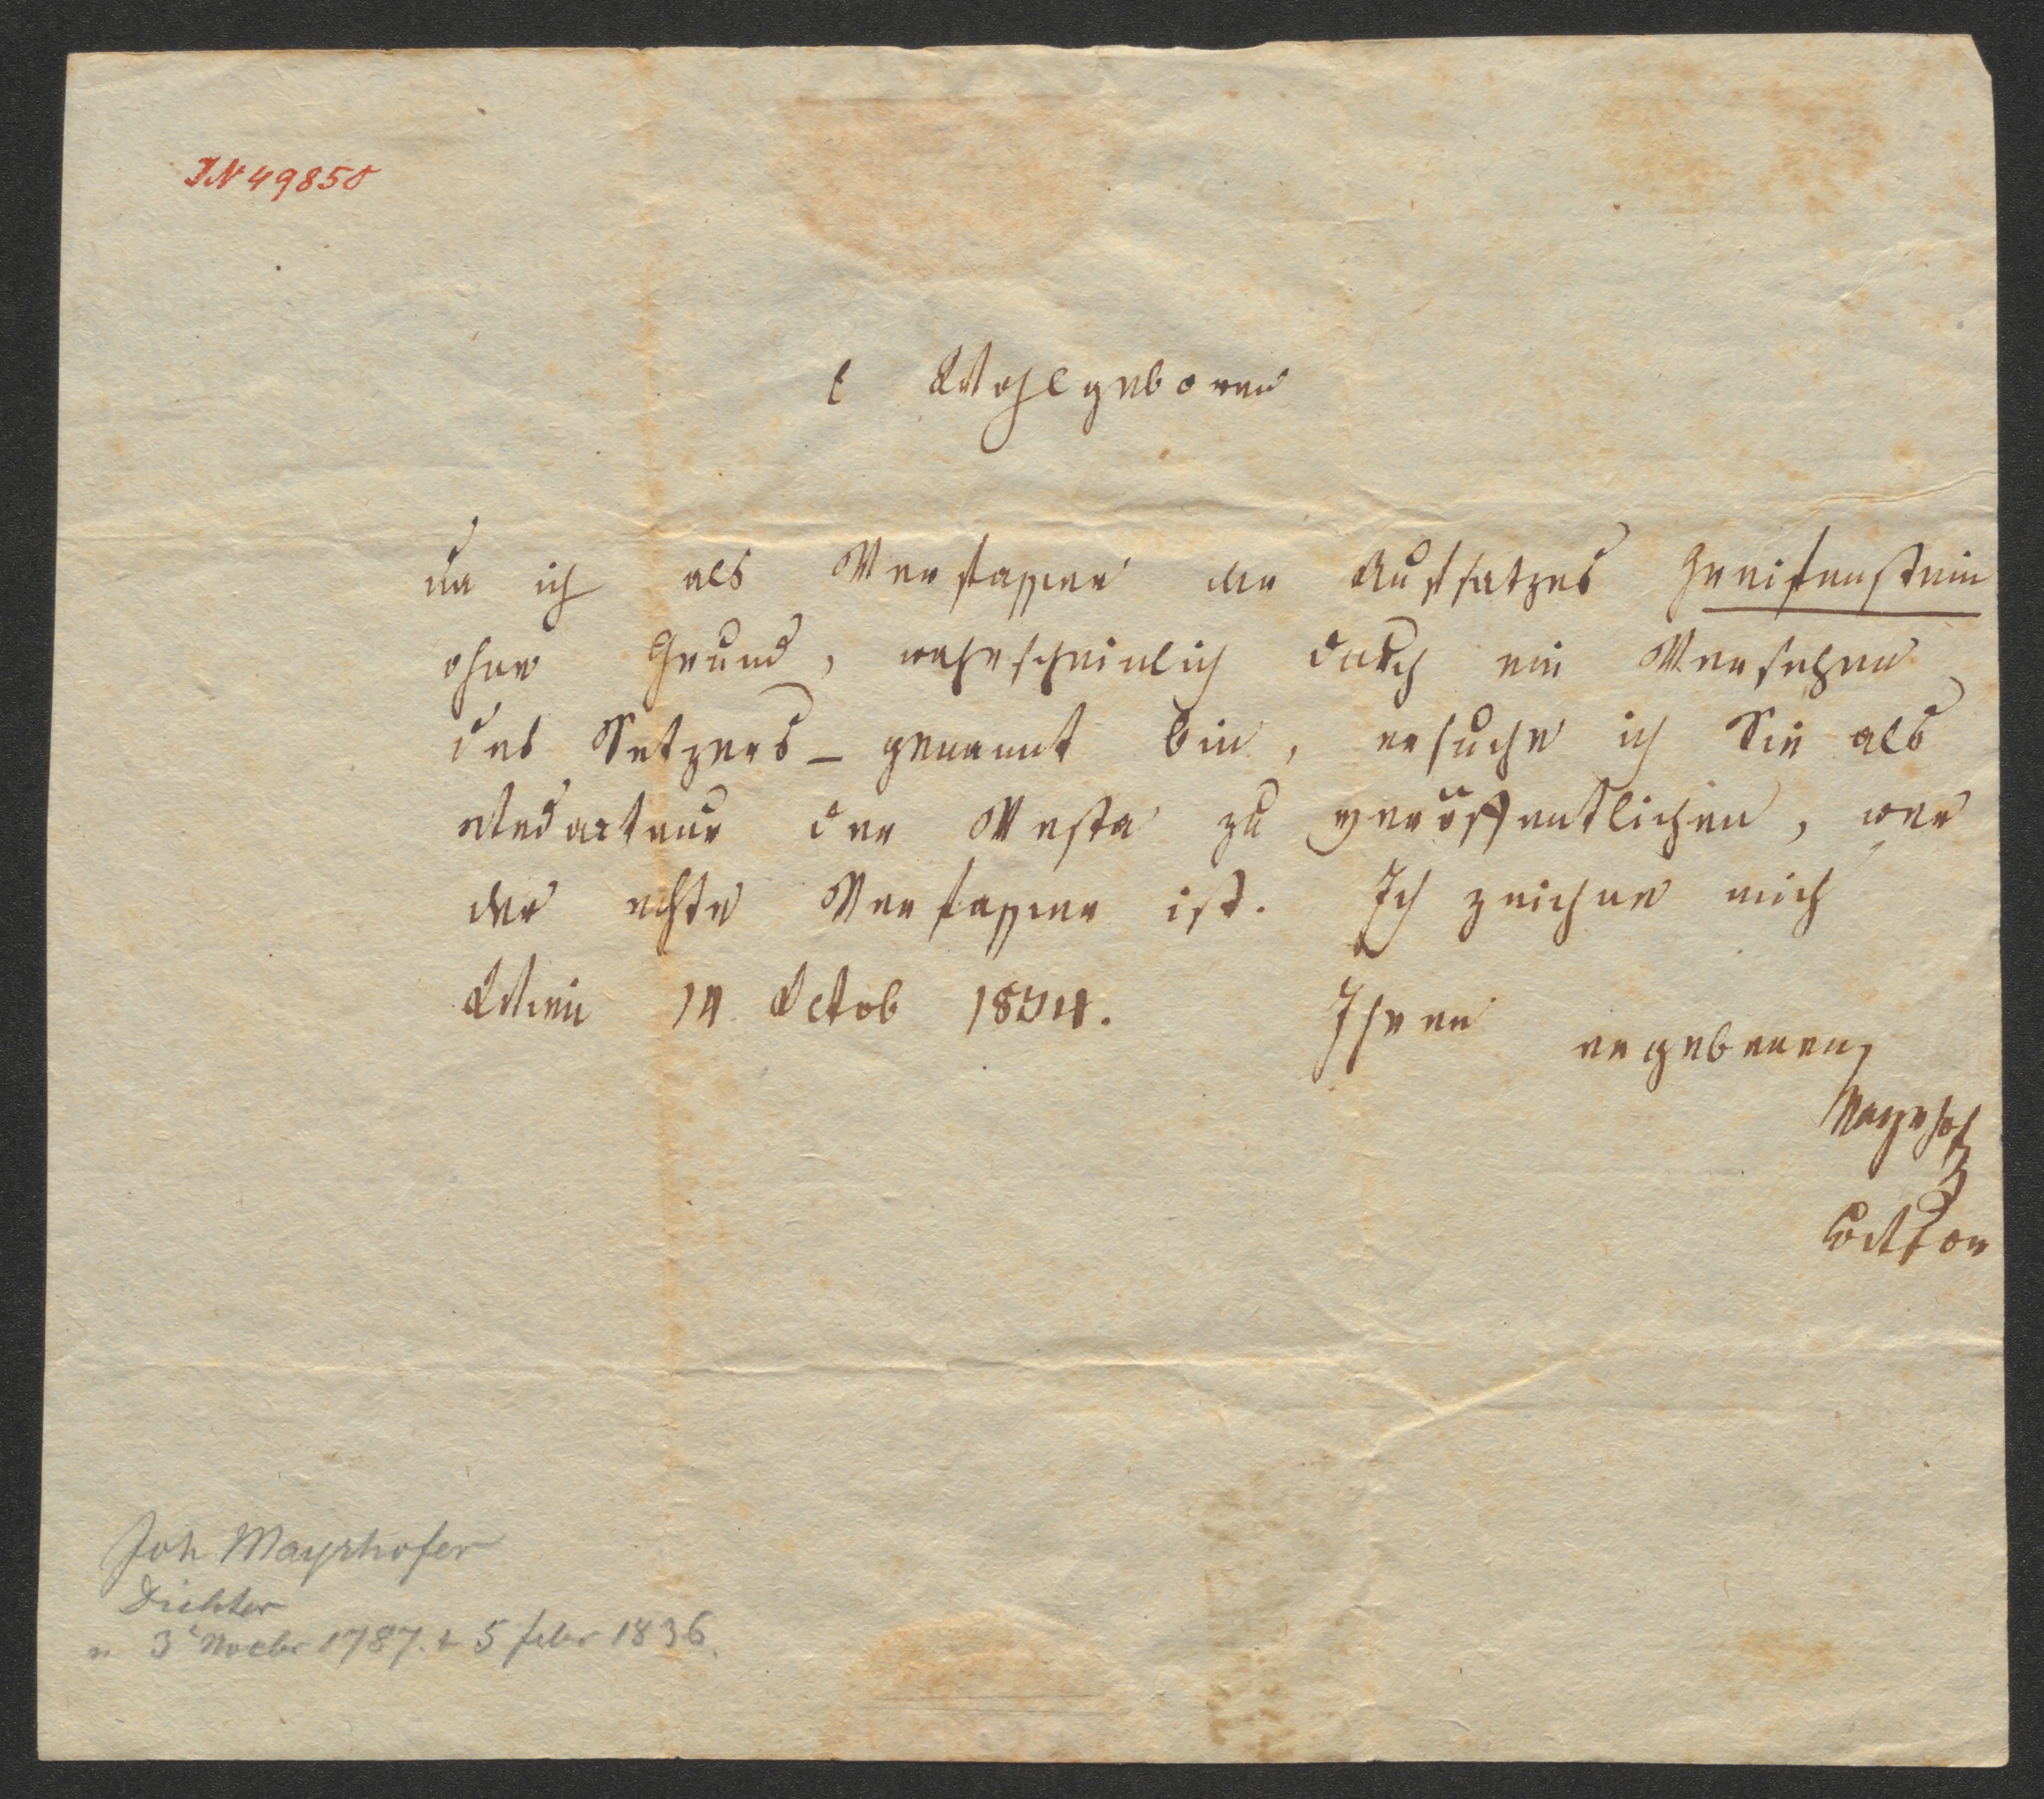 IN 49850
E Wohlgeboren
Da ich als Verfasser des Aufsatzes Greifenstein
ohne Grund, wahrscheinlich durch ein Versehen
des Setzers – genannt bin, ersuche ich Sie als
Redacteur der Vesta zu veröffentlichen, wer
der echte Verfasser ist. Ich zeichne mich
Wien 14 Octob 1834.
Ihren ergebenen
Mayrhof
Joh Mayrhofer
Dichter
3 Novbr 1787. + 5 febr 1836.